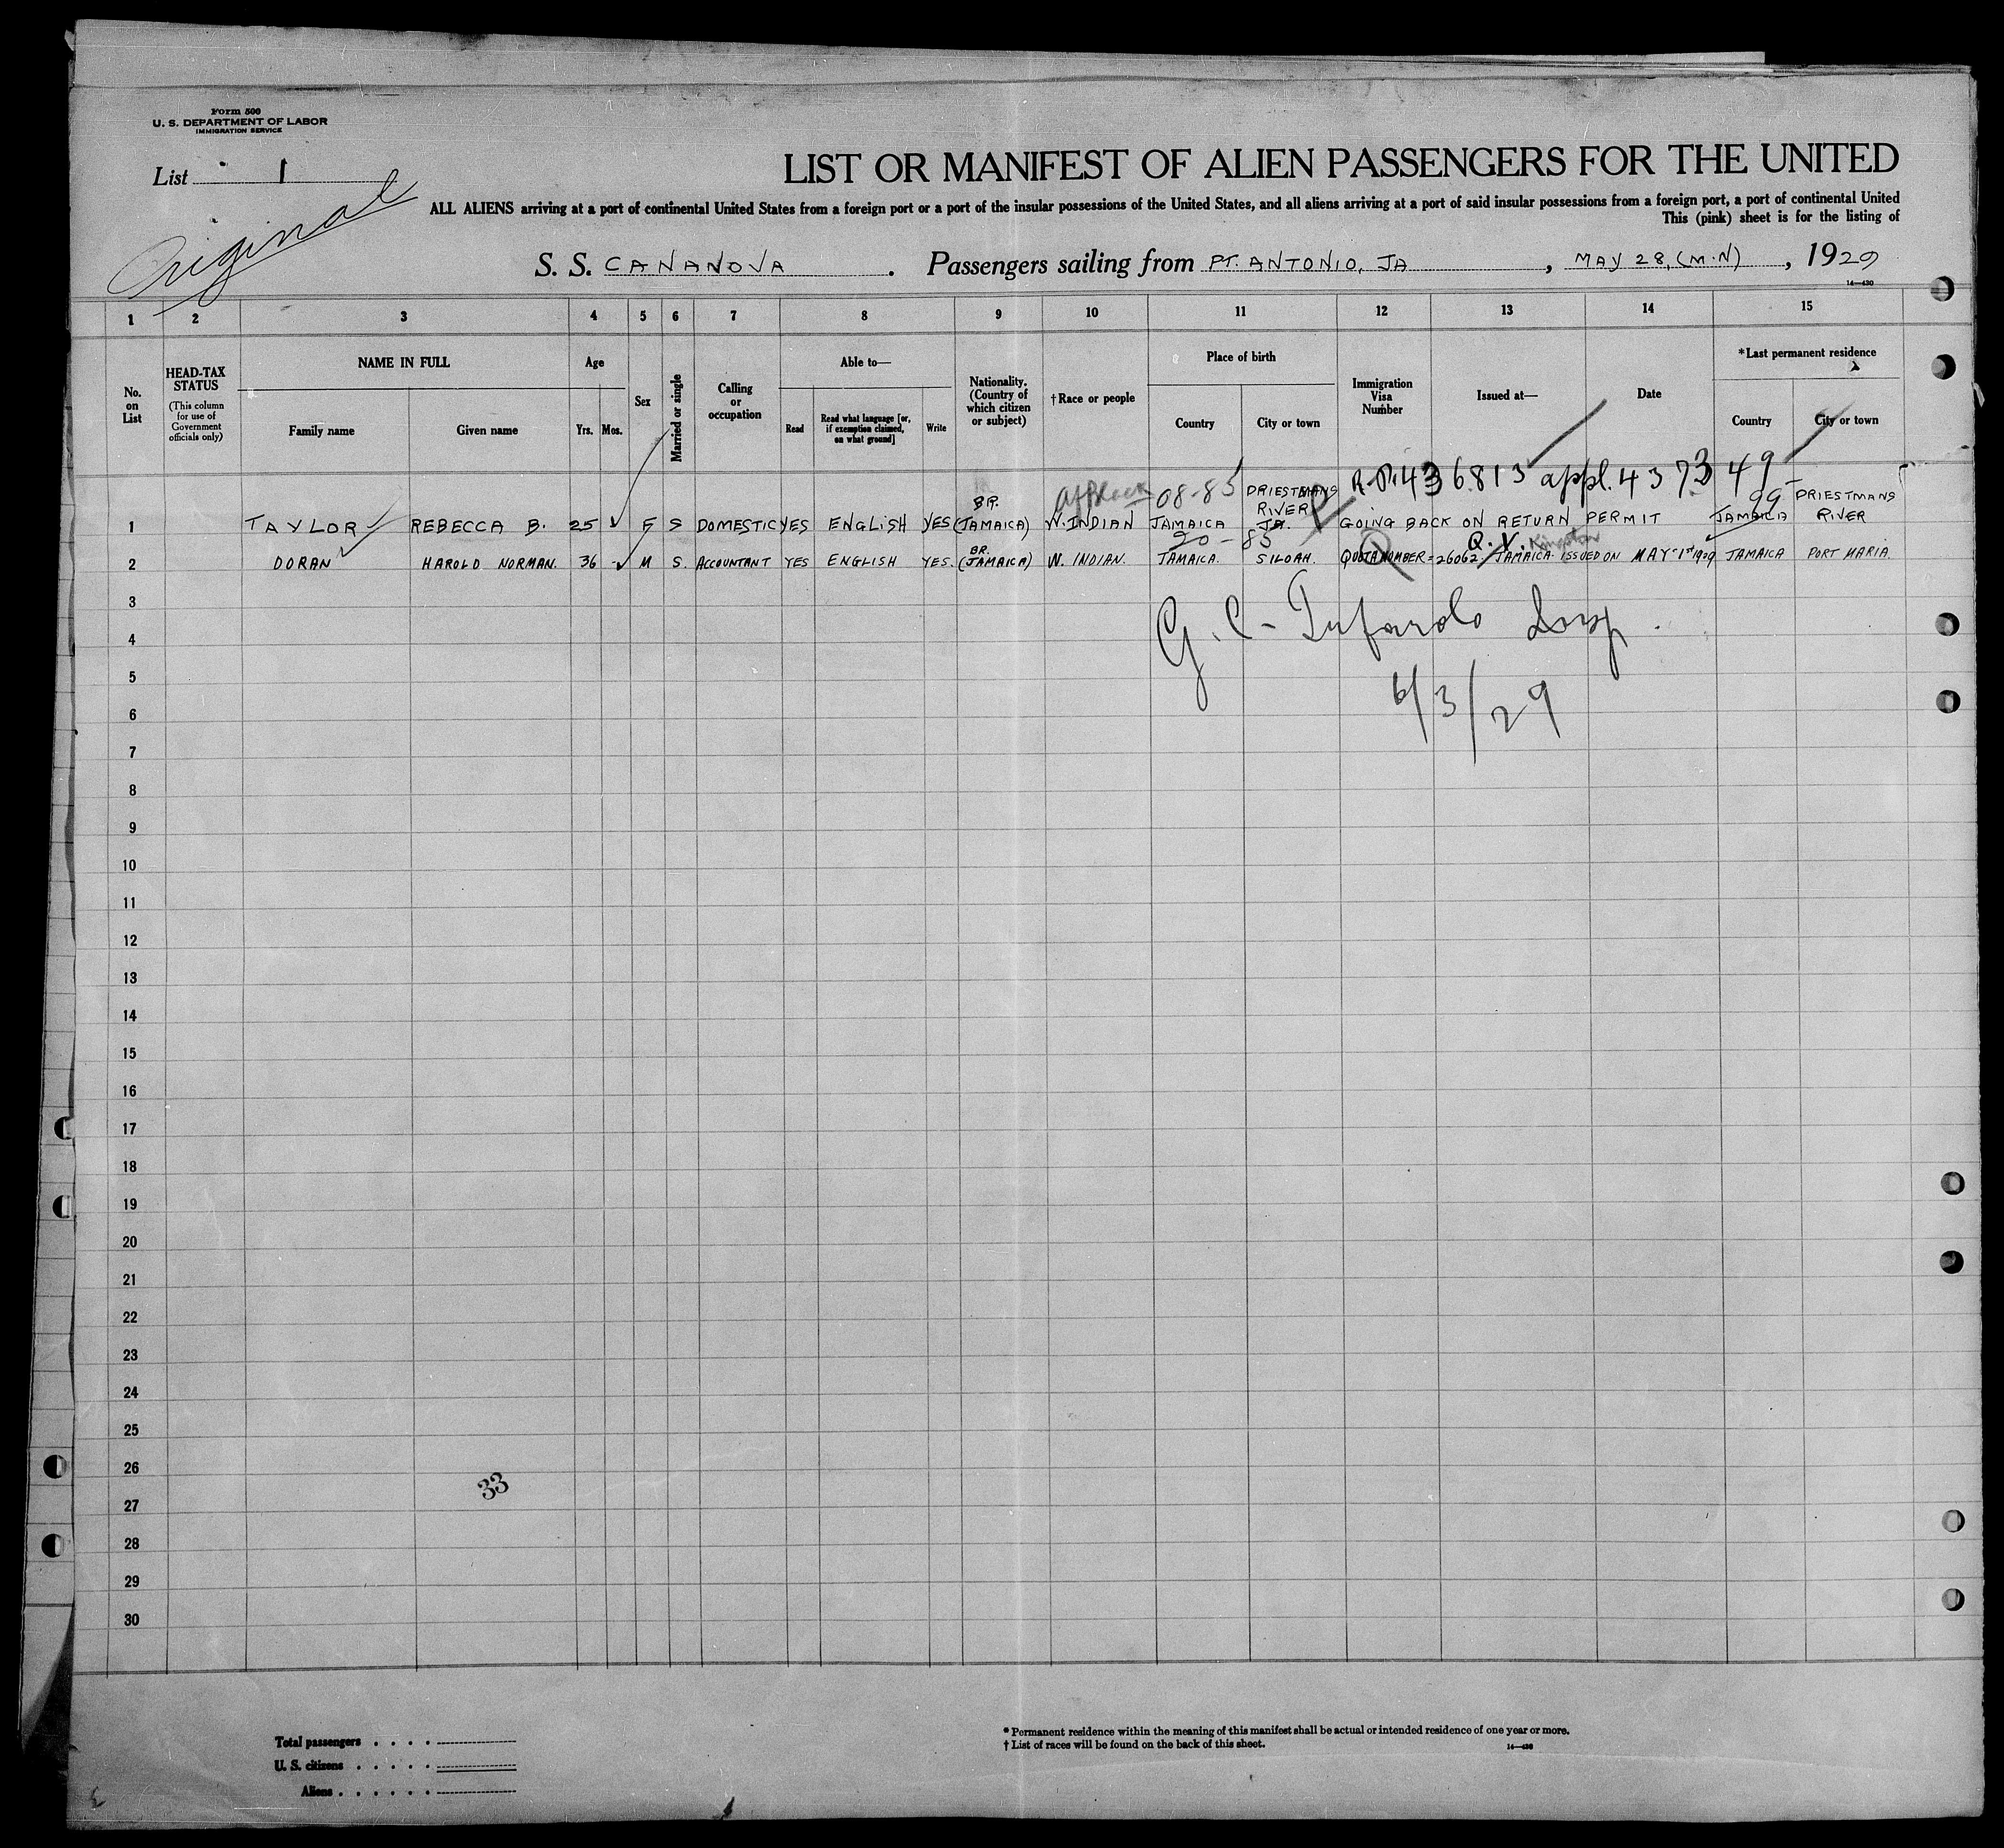 Form 500
U. S. DEPARTMENT OF LABOR
IMMIGRATION SERVICE
List 1
Original
LIST OR MANIFEST OF ALIEN PASSENGERS FOR THE UNITED
ALL ALIENS arriving at a port of continental United States from a foreign port or a port of the insular possessions of the United States, and all aliens arriving at a port of said insular possessions from a foreign port, a port of continental United
This (pink) sheet is for the listing of
S. S. CANANOVA . Passengers sailing from PT. ANTONIO, JA , MAY 28, (M.N) , 1929
14—430
1 2 3 4 5 6 7 8 9 10 11 12 13 14 15
No. on List
HEAD-TAX STATUS
(This column for use of Government officials only)
NAME IN FULL
Family name Given name
Age
Yrs. Mos.
Sex
Married or single
Calling or occupation
Able to—
Read Read what language [or, if exemption claimed, on what ground] Write
Nationality. (Country of which citizen or subject)
† Race or people
Place of birth
Country City or town
Immigration Visa Number
Issued at—
Date
*Last permanent residence
Country City or town
R.P. 436813 appl. 437349
08-85 99
1 TAYLOR REBECCA B. 25 F S DOMESTIC YES ENGLISH YES BR. (JAMAICA) W. INDIAN JAMAICA PRIESTMANS RIVER JA. GOING BACK ON RETURN PERMIT JAMAICA PRIESTMANS RIVER
20-85 Q.V. Kingston
2 DORAN HAROLD NORMAN. 36 - M S. ACCOUNTANT YES ENGLISH YES. BR. (JAMAICA) W. INDIAN. JAMAICA. SILOAH. QUOTA NUMBER = 26062 JAMAICA ISSUED ON MAY 1st 1929 JAMAICA PORT MARIA.
3
G. C. Insp.
4
5
6/3/29
6
7
8
9
10
11
12
13
14
15
16
17
18
19
20
21
22
23
24
25
26
33
27
28
29
30
Total passengers
U. S. citizens
Aliens
* Permanent residence within the meaning of this manifest shall be actual or intended residence of one year or more.
† List of races will be found on the back of this sheet.
14—430